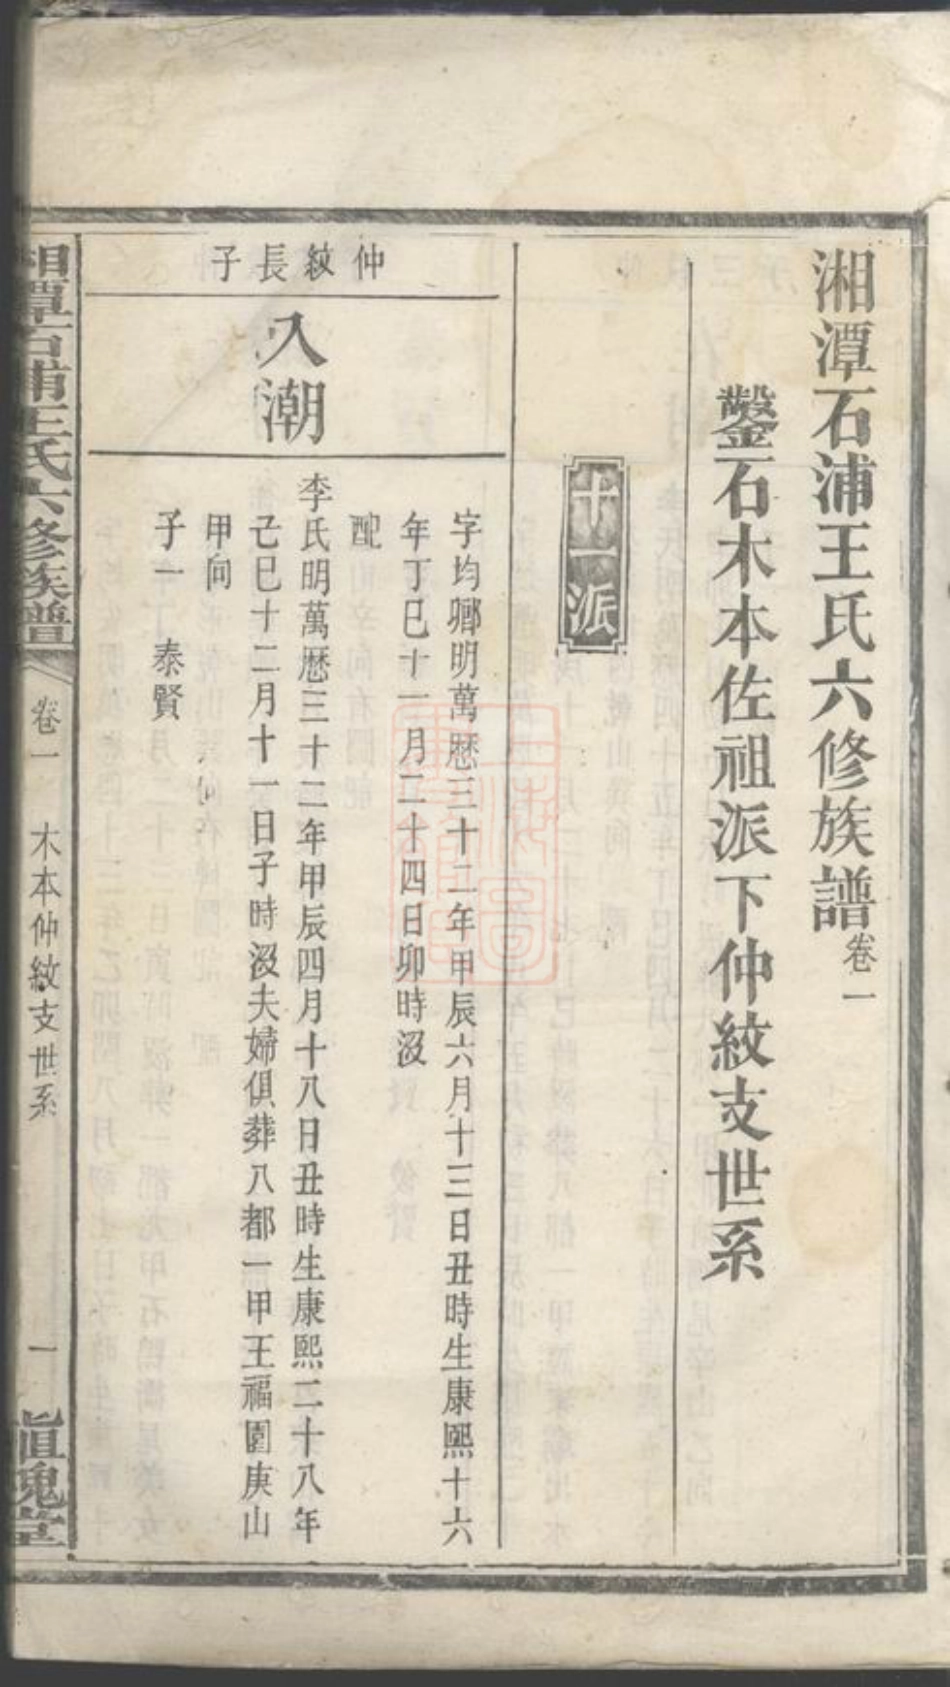 湘潭石浦王氏六修族譜卷一
鑿石木本佐祖派下仲紋支世系
十一派
仲紋長子
入潮
字均鄉明萬厯三十二年甲辰六月十三日丑時生康熙十六
年丁巳十一月二十四日卯時沒
配
李氏明萬厯三十二年甲辰四月十八日丑時生康熙二十八年
己巳十二月十一日子時沒夫婦俱葬八都一甲王福園庚山
甲向
子一 泰賢
湘潭石浦王氏六修族譜
卷一 木本仲紋支世系 一
槐堂